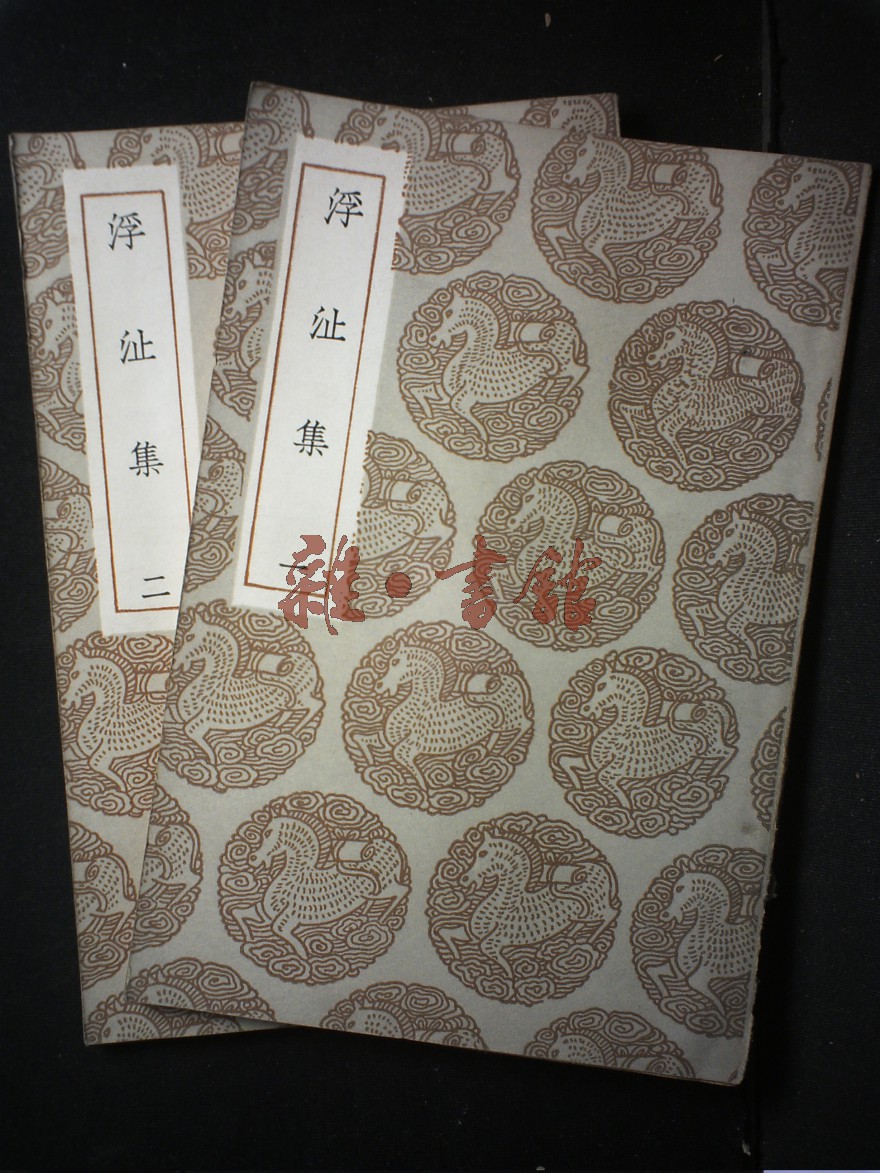 浮沚集
一
浮沚集
二
雜·書館